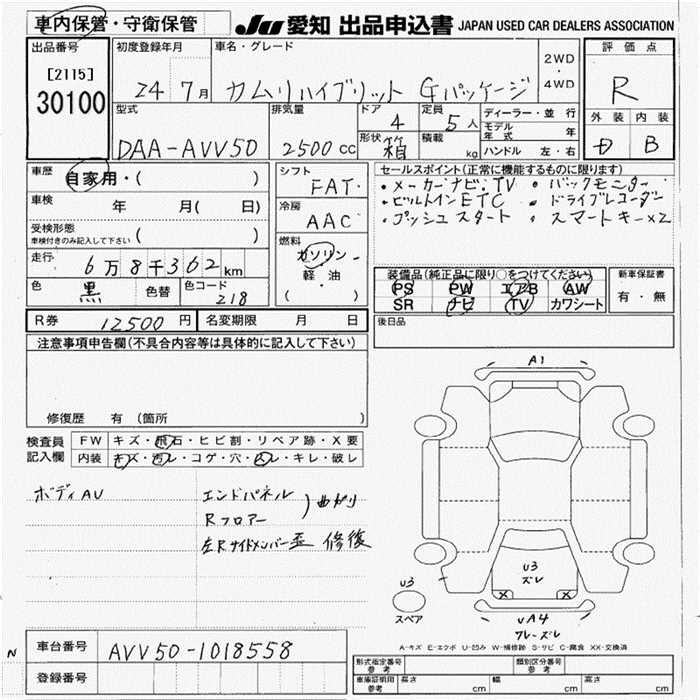 車内保管・守衛保管
JU 愛知 出品申込書 JAPAN USED CAR DEALERS ASSOCIATION
出品番号
[2115]
30100
初度登録年月
24 7月
車名・グレード
カムリハイブリット Gパッケージ
2WD
・
4WD
評価点
R
外装 内装
B
型式
DAA-AVV50
排気量
2500 cc
ドア
4
定員
5人
形状 箱
積載
kg
ディーラー・並行
モデル年式 年
ハンドル 左・右
車歴
自家用・( )
車検
年 月( 日)
受検形態
車検付きのみ記入して下さい ( )
走行
6万8千362km
色 黒 色替
色コード
218
シフト
FAT
冷房
AAC
燃料
ガソリン
軽・油
( ・ )
セールスポイント(正常に機能するものに限ります)
・メーカーナビ、TV ・バックモニター
・ビルトインETC ・ドライブレコーダー
・プッシュスタート ・スマートキー×2
装備品(純正品に限り○をつけてください)
PS PW エアB AW
SR ナビ TV カワシート
新車保証書
有・無
後日品
R券 12500円
名変期限 月 日
注意事項申告欄(不具合内容等は具体的に記入して下さい)
修復歴 有 (箇所 )
検査員
記入欄
FW キズ・飛石・ヒビ割・リペア跡・X要
内装 キズ・汚レ・コゲ・穴・凹レ・キレ・破レ
ボディAU
エンドパネル
Rフロアー
曲がり
左Rサイドメンバー歪 修復
A1
U3
ズレ
X X
U3
スペア
UA4
フレーズレ
A-キズ E-エクボ U-凹み W-補修跡 S-サビ C-腐食 XX-交換済
N
車台番号
AVV50-1018558
登録番号
形式指定番号
参考
類別区分番号
参考
車庫証明用
参考
長さ cm
幅 cm
高さ cm